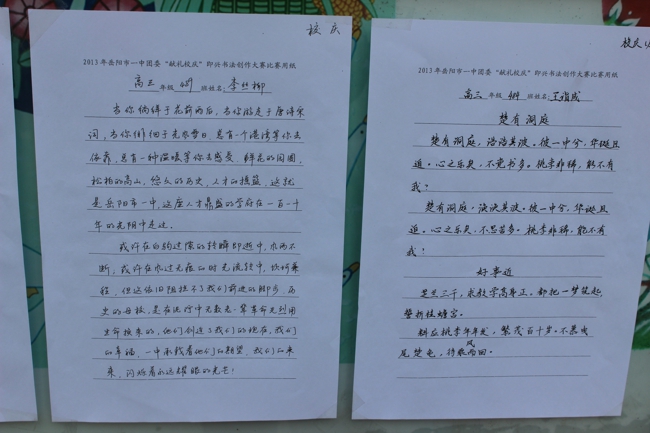 校庆
2013年岳阳市一中团委“献礼校庆”即兴书法创作大赛比赛用纸
高三 年级 班姓名:李丝柳
当你徜徉于花前雨后,当你游走于唐诗宋
词,当你徘徊于光风雪日,总有一个港湾等你去
休养,总有一种温暖等你去感受,鲜花的周围,
松柏的高山,悠久的历史,人才的摇篮,这就
是岳阳市一中,这座人才鼎盛的学府在一百一十
年的光阴中走过。
我们在白驹过隙的转瞬即逝中,永而不
断,我们在永过无痕的时光流转中,
程,但这依旧阻挡不了我们前进的脚步,历
史的母校,是在逆行中无数先辈革命先烈用
生命换来的,他们创造了我们的现在,我们
的幸福,一中承载着他们的期望,我们的未
来,闪烁着永远耀眼的光芒!
校庆
2013年岳阳市一中团委“献礼校庆”即兴书法创作大赛比赛用纸
高三 年级 班姓名:王
楚有洞庭
楚有洞庭,浩浩其波。彼一中兮,华诞且
逍。心之乐矣,不觉书多。桃李非稀,能不有
我?
楚有洞庭,泱泱其波。彼一中兮,华诞且
逍。心之乐矣,不思苦多。桃李非稀,能不有
我?
好事近
芝兰三千,求教学高身正。都把一梦筑起,
攀折桂蟾宫。
料应桃李年年发,繁茂百十岁。不愿曳
尾楚龟,待乘风雨回。